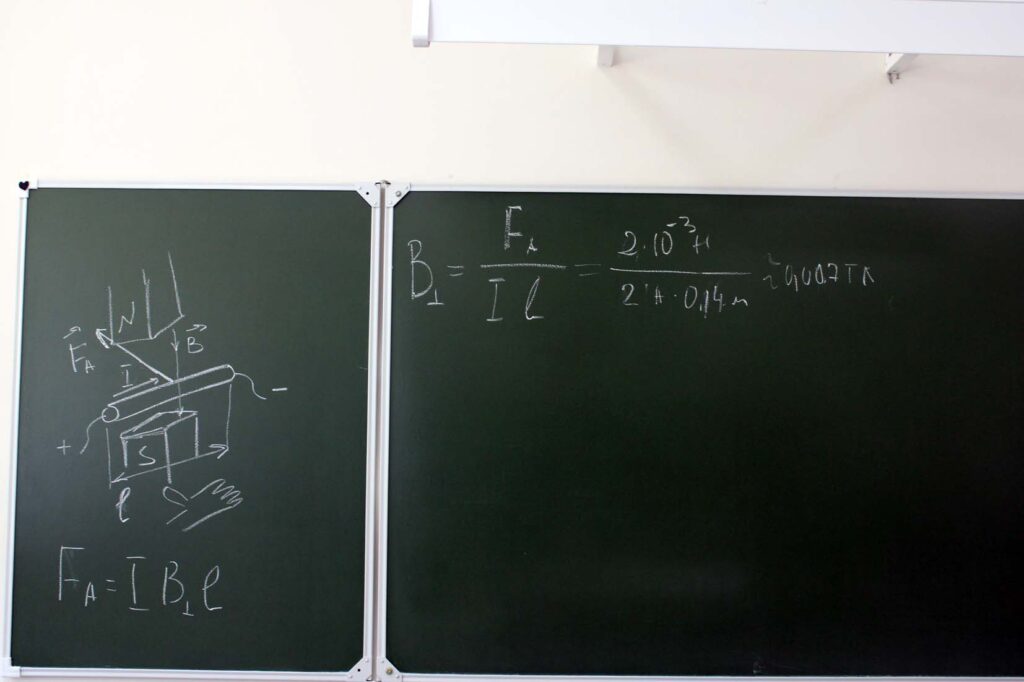 N
F⃗_A
B⃗
I
+
−
S
ℓ
F_A = I B_⊥ ℓ
B_⊥ = F_A / (I ℓ) = 2·10⁻³ Н / (2 А · 0,14 м) ≈ 0,007 Тл